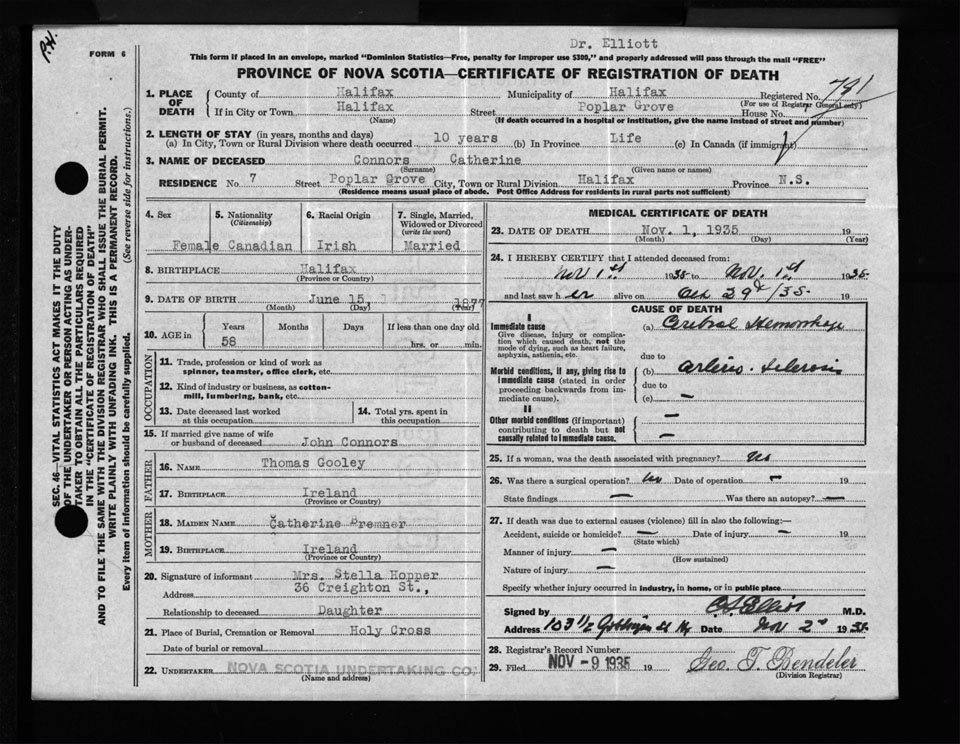 P.H.
FORM 6
Dr. Elliott
This form if placed in an envelope, marked "Dominion Statistics—Free, penalty for improper use $300," and properly addressed will pass through the mail "FREE"
PROVINCE OF NOVA SCOTIA—CERTIFICATE OF REGISTRATION OF DEATH
1. PLACE OF DEATH County of Halifax Municipality of Halifax Registered No. 781
(For use of Registrar General only)
If in City or Town Halifax Street Poplar Grove House No.
(Name) (If death occurred in a hospital or institution, give the name instead of street and number)
2. LENGTH OF STAY (in years, months and days)
(a) In City, Town or Rural Division where death occurred 10 years (b) In Province Life (c) In Canada (if immigrant)
3. NAME OF DECEASED Connors Catherine
(Surname) (Given name or names)
RESIDENCE No. 7 Street Poplar Grove City, Town or Rural Division Halifax Province N.S.
(Residence means usual place of abode. Post Office Address for residents in rural parts not sufficient)
4. Sex 5. Nationality (Citizenship) 6. Racial Origin 7. Single, Married, Widowed or Divorced (write the word)
Female Canadian Irish Married
8. BIRTHPLACE Halifax
(Province or Country)
9. DATE OF BIRTH June 15, 1877
(Month) (Day) (Year)
10. AGE in Years Months Days If less than one day old
58 hrs. or min.
OCCUPATION
11. Trade, profession or kind of work as spinner, teamster, office clerk, etc.
12. Kind of industry or business, as cotton-mill, lumbering, bank, etc.
13. Date deceased last worked at this occupation
14. Total yrs. spent in this occupation
15. If married give name of wife or husband of deceased John Connors
FATHER
16. NAME Thomas Gooley
17. BIRTHPLACE Ireland
(Province or Country)
MOTHER
18. MAIDEN NAME Catherine
19. BIRTHPLACE Ireland
(Province or Country)
20. Signature of informant Mrs. Stella Hopper
Address 36 Creighton St.,
Relationship to deceased Daughter
21. Place of Burial, Cremation or Removal Holy Cross
Date of burial or removal
22. UNDERTAKER NOVA SCOTIA UNDERTAKING CO.
(Name and address)
MEDICAL CERTIFICATE OF DEATH
23. DATE OF DEATH Nov. 1, 1935 19
(Month) (Day) (Year)
24. I HEREBY CERTIFY that I attended deceased from:
Nov 1st 1935 to Nov. 1st 1935
and last saw her alive on Oct 29th/35 19
CAUSE OF DEATH
I
Immediate cause
Give disease, injury or complication which caused death, not the mode of dying, such as heart failure, asphyxia, asthenia, etc.
(a) Cerebral Hemorrhage
due to
Morbid conditions, if any, giving rise to immediate cause (stated in order proceeding backwards from immediate cause).
(b) Arterio-sclerosis
due to
(c) —
II
Other morbid conditions (if important) contributing to death but not causally related to immediate cause.
—
—
25. If a woman, was the death associated with pregnancy? No
26. Was there a surgical operation? No Date of operation — 19
State findings — Was there an autopsy? —
27. If death was due to external causes (violence) fill in also the following:—
Accident, suicide or homicide? — Date of injury — 19
(State which)
Manner of injury —
(How sustained)
Nature of injury —
Specify whether injury occurred in industry, in home, or in public place
Signed by Elliott M.D.
Address 103 1/2 Gottingen St Date Nov 2nd 1935.
28. Registrar's Record Number
29. Filed NOV - 9 1935 19 Geo. T. Bendeler
(Division Registrar)
SEC. 46—VITAL STATISTICS ACT MAKES IT THE DUTY
OF THE UNDERTAKER OR PERSON ACTING AS UNDER-
TAKER TO OBTAIN ALL THE PARTICULARS REQUIRED
IN THE "CERTIFICATE OF REGISTRATION OF DEATH"
AND TO FILE THE SAME WITH THE DIVISION REGISTRAR WHO SHALL ISSUE THE BURIAL PERMIT.
WRITE PLAINLY WITH UNFADING INK. THIS IS A PERMANENT RECORD.
Every item of information should be carefully supplied. (See reverse side for instructions.)